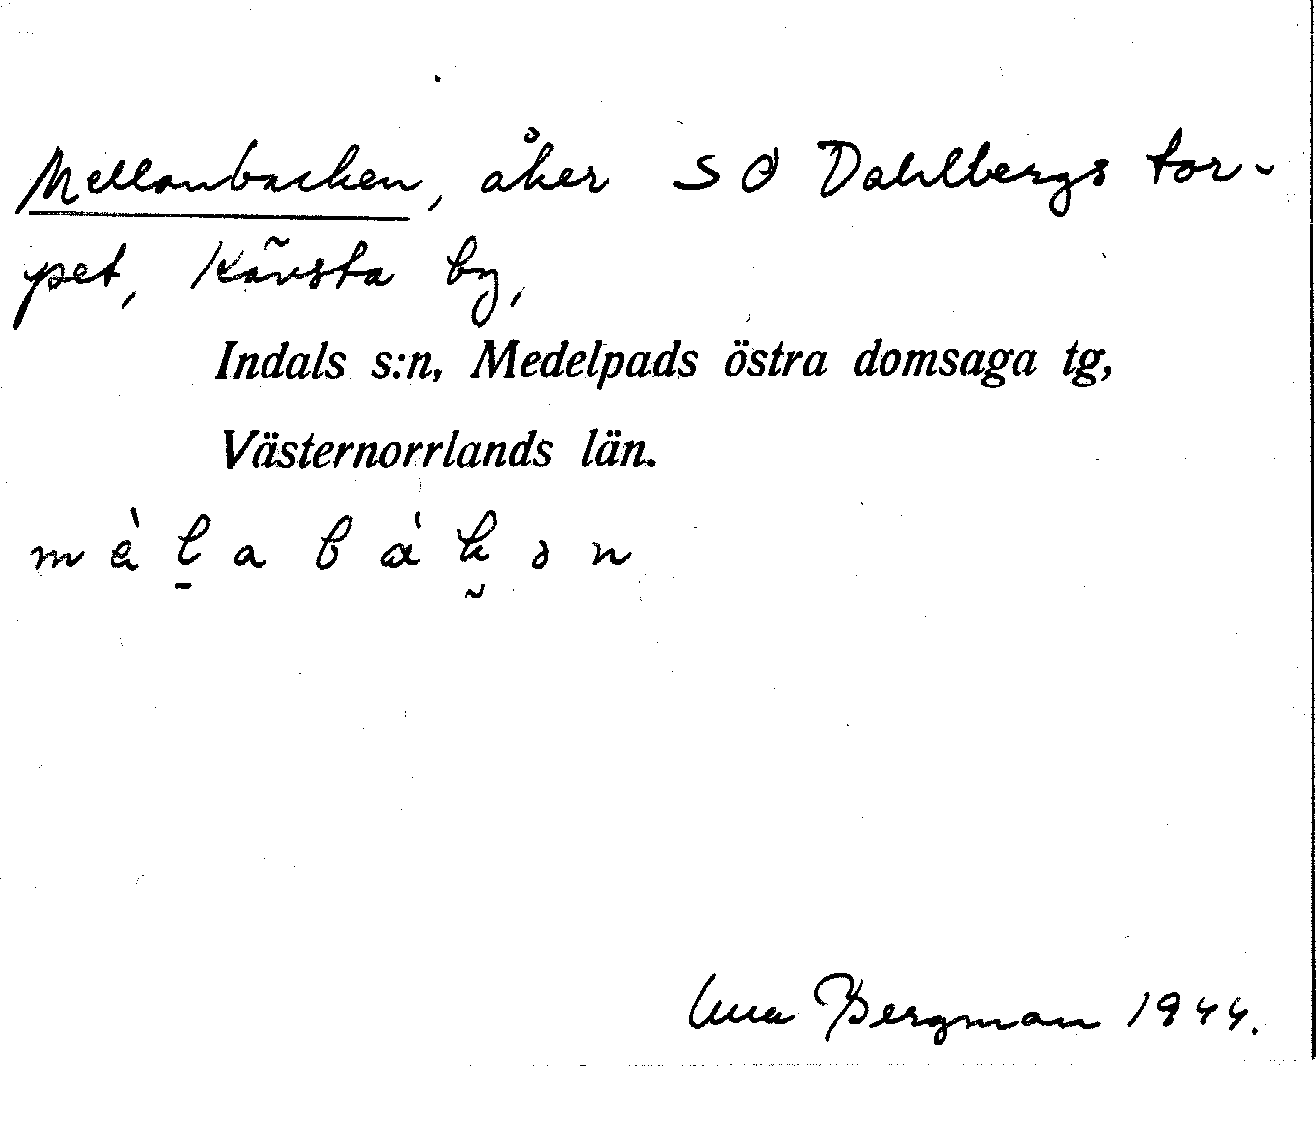 Mellanbacken, åker SÖ Dahlbergs tor-
pet, Kävsta by,
Indals s:n, Medelpads östra domsaga tg,
Västernorrlands län.
m è l̠ a b á k̰ ə n
Bergman 1944.